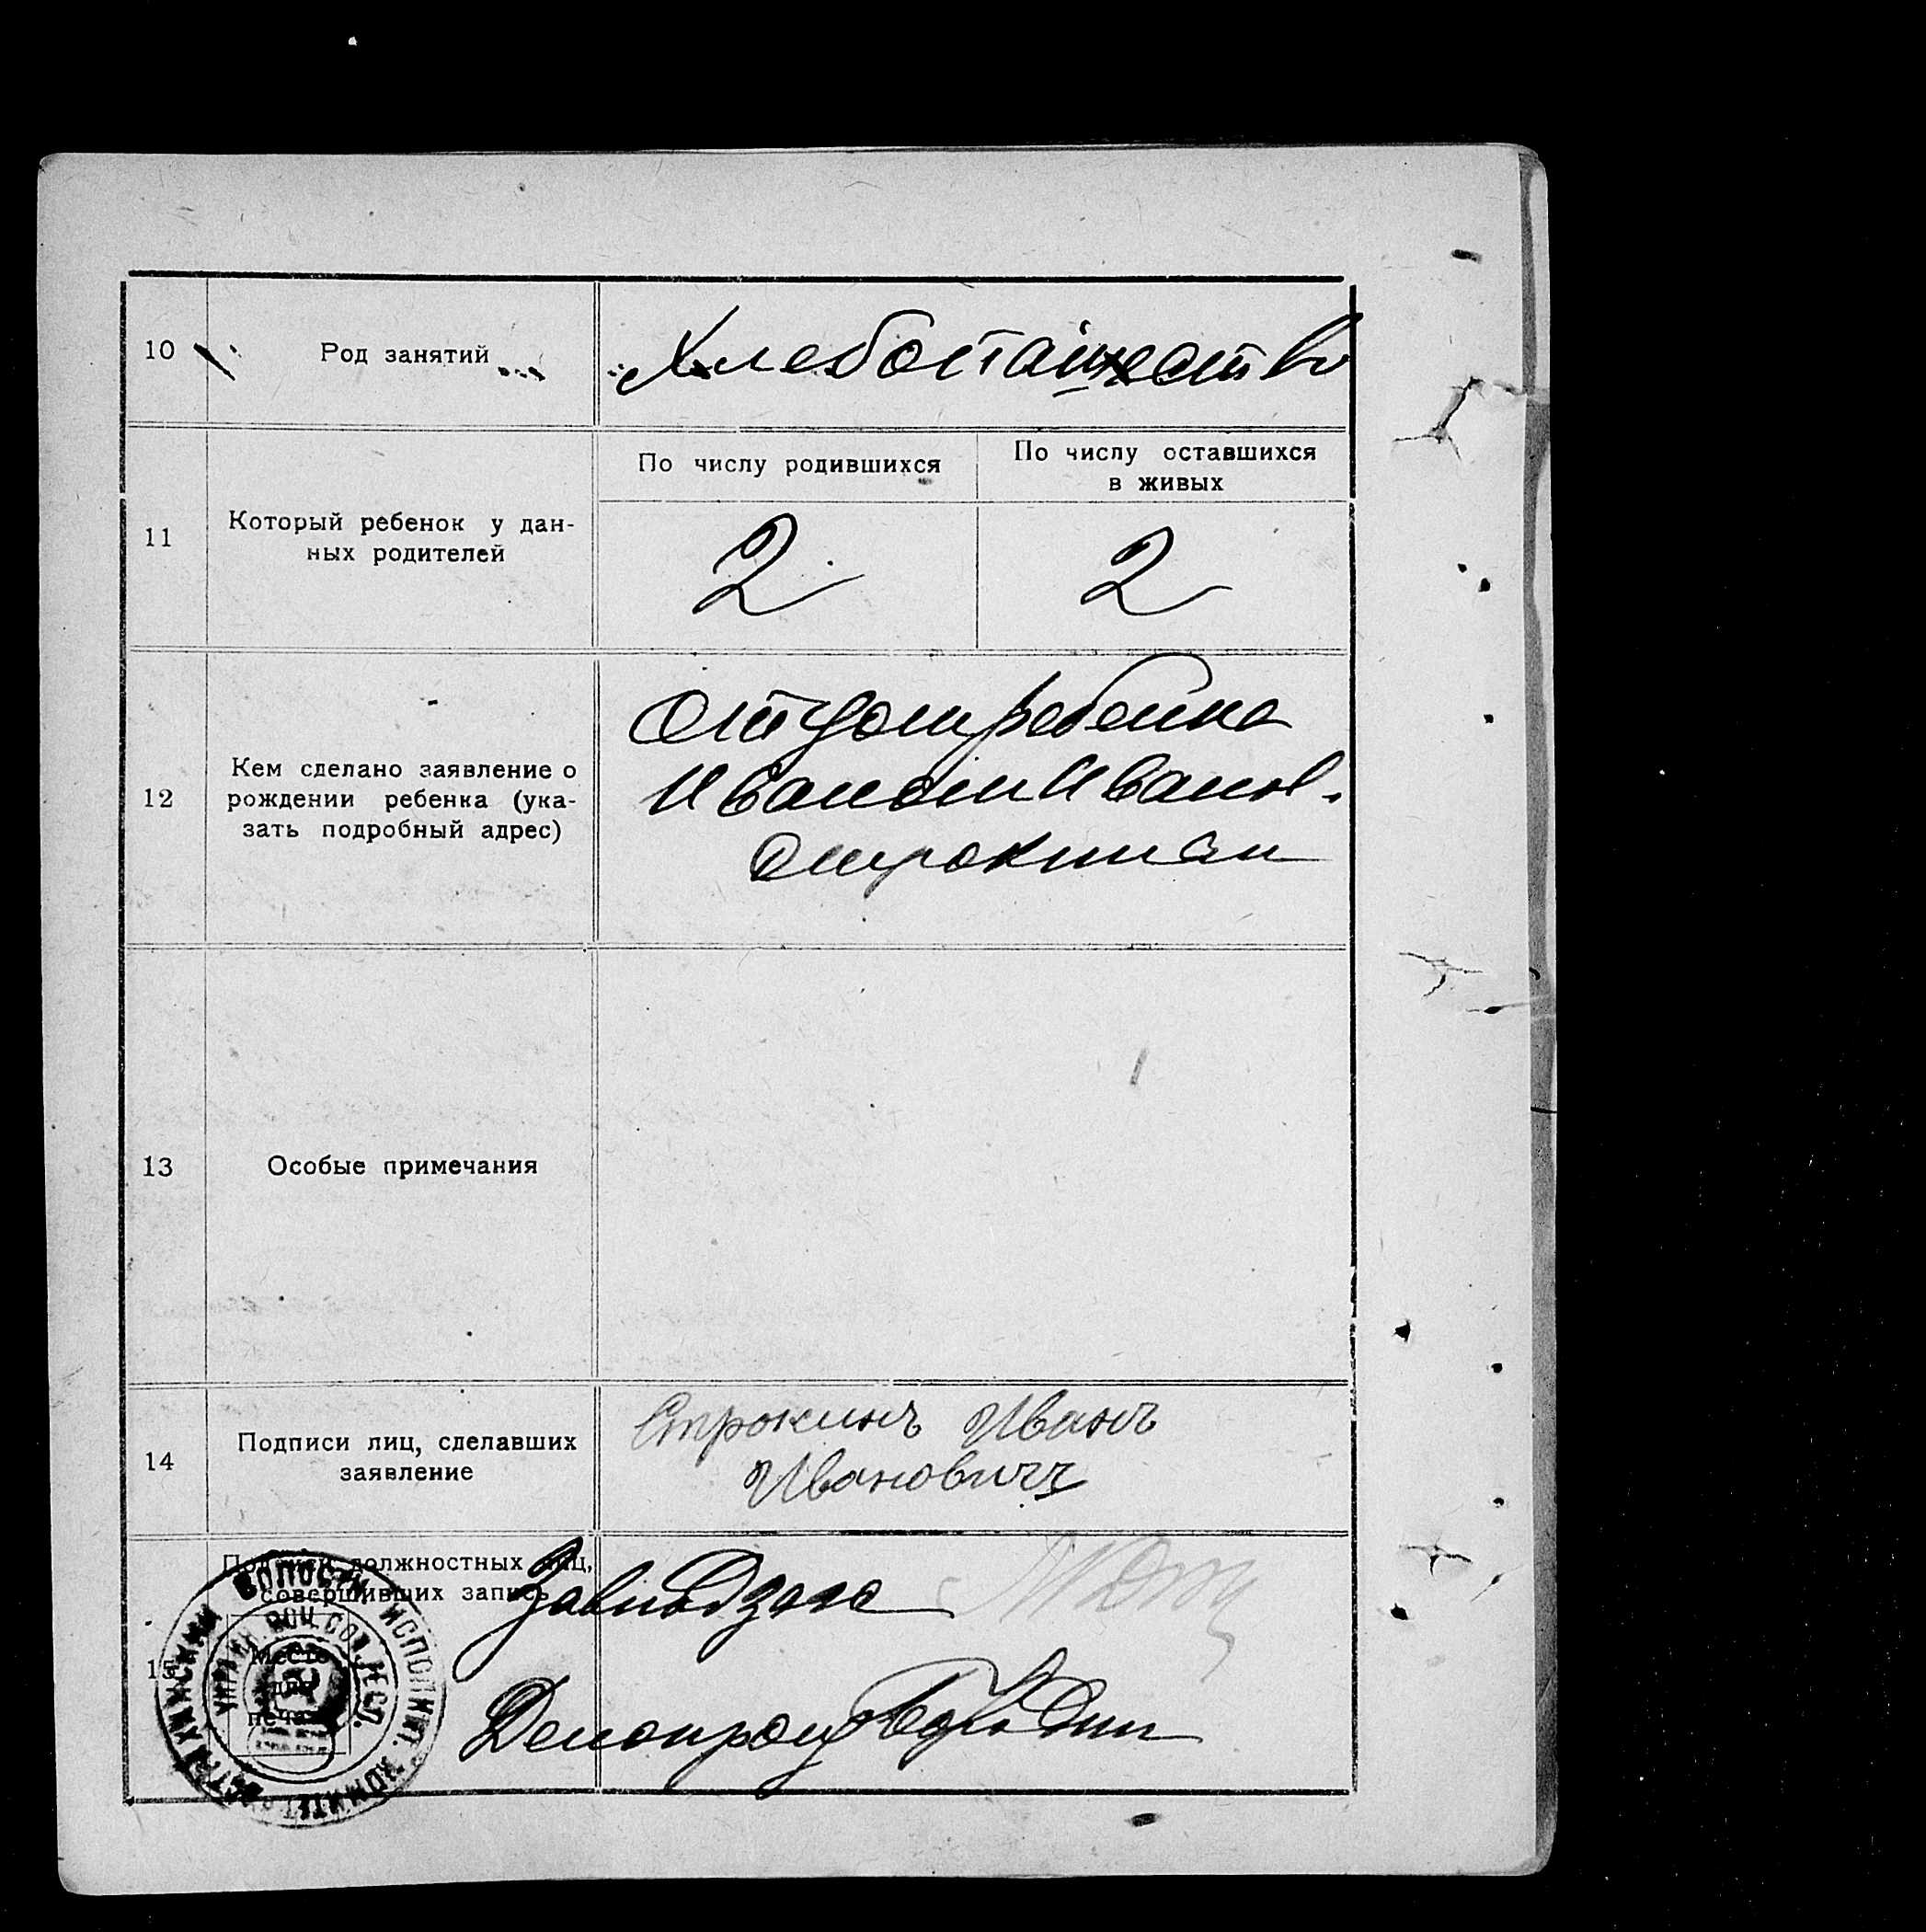 10
Род занятий
Хлебопашество
11
Который ребенок у дан-
ных родителей
По числу родившихся
По числу оставшихся
в живых
2
2
12
Кем сделано заявление о
рождении ребенка (ука-
зать подробный адрес)
Отцом ребенка
Иваном Иванов.
Строкиным
13
Особые примечания
14
Подписи лиц, сделавших
заявление
Строкинъ Иванъ
Ивановичъ
15
Подписи должностных лиц,
совершивших запись
Завподзагс
Место
для
печати
ВОЛОСТН. ИСПОЛНИТ. КОМИТЕТ
Делопроизводит